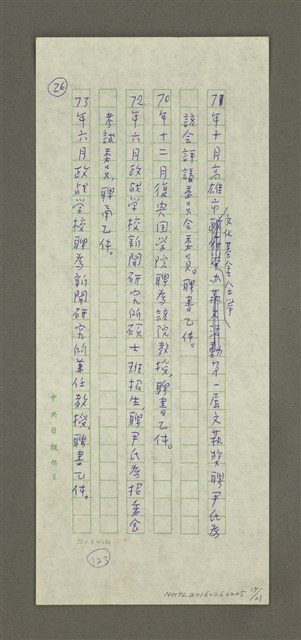 26
71年十月高雄市文化基金會第一屆文藝獎聘尹氏為
該會評議委員會委員。聘書乙件。
70年十二月復興国学院聘為該院教授,聘書乙件。
72年六月政战学校新聞研究所碩士班招生,聘尹氏為招生会
考試委員,聘函乙件。
73年六月政战学校聘為新聞研究所兼任教授,聘書乙件。
中央日報
123
NMTL20160260025